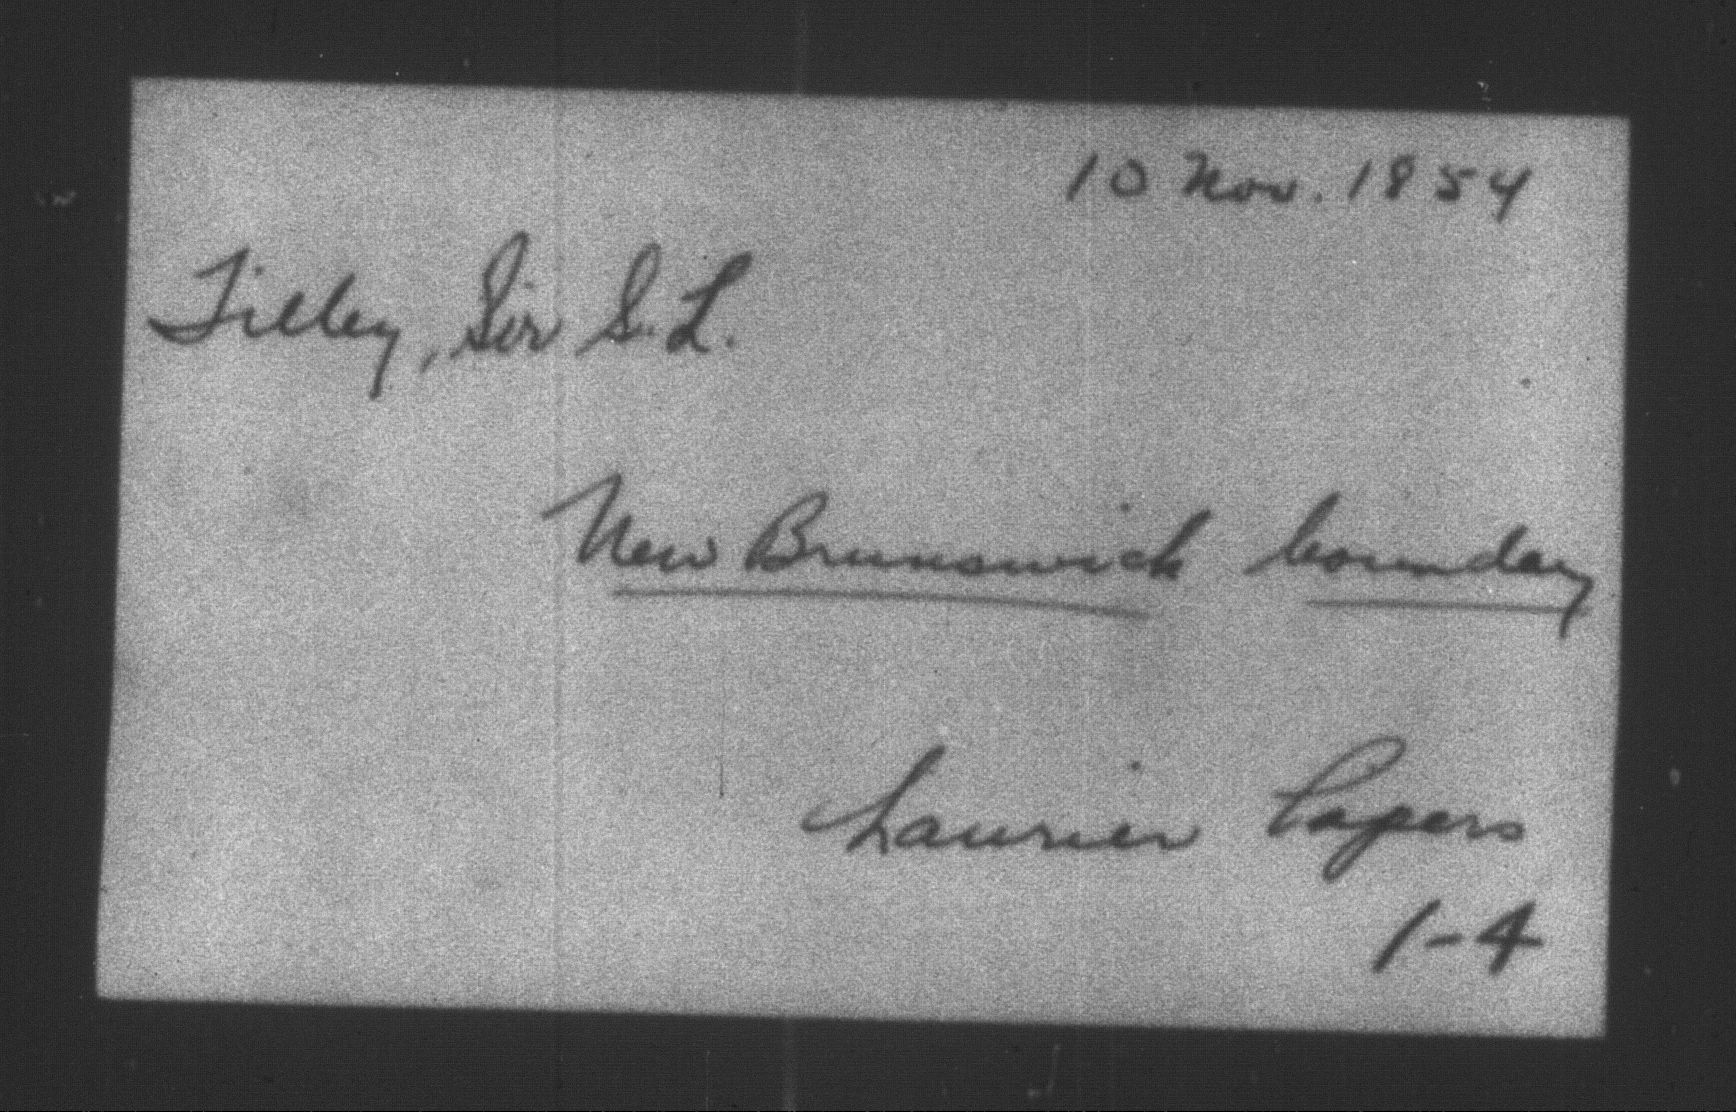 10 Nov. 1854
Tilley, Sir S. L.
New Brunswick boundary
Laurier Papers
1-4